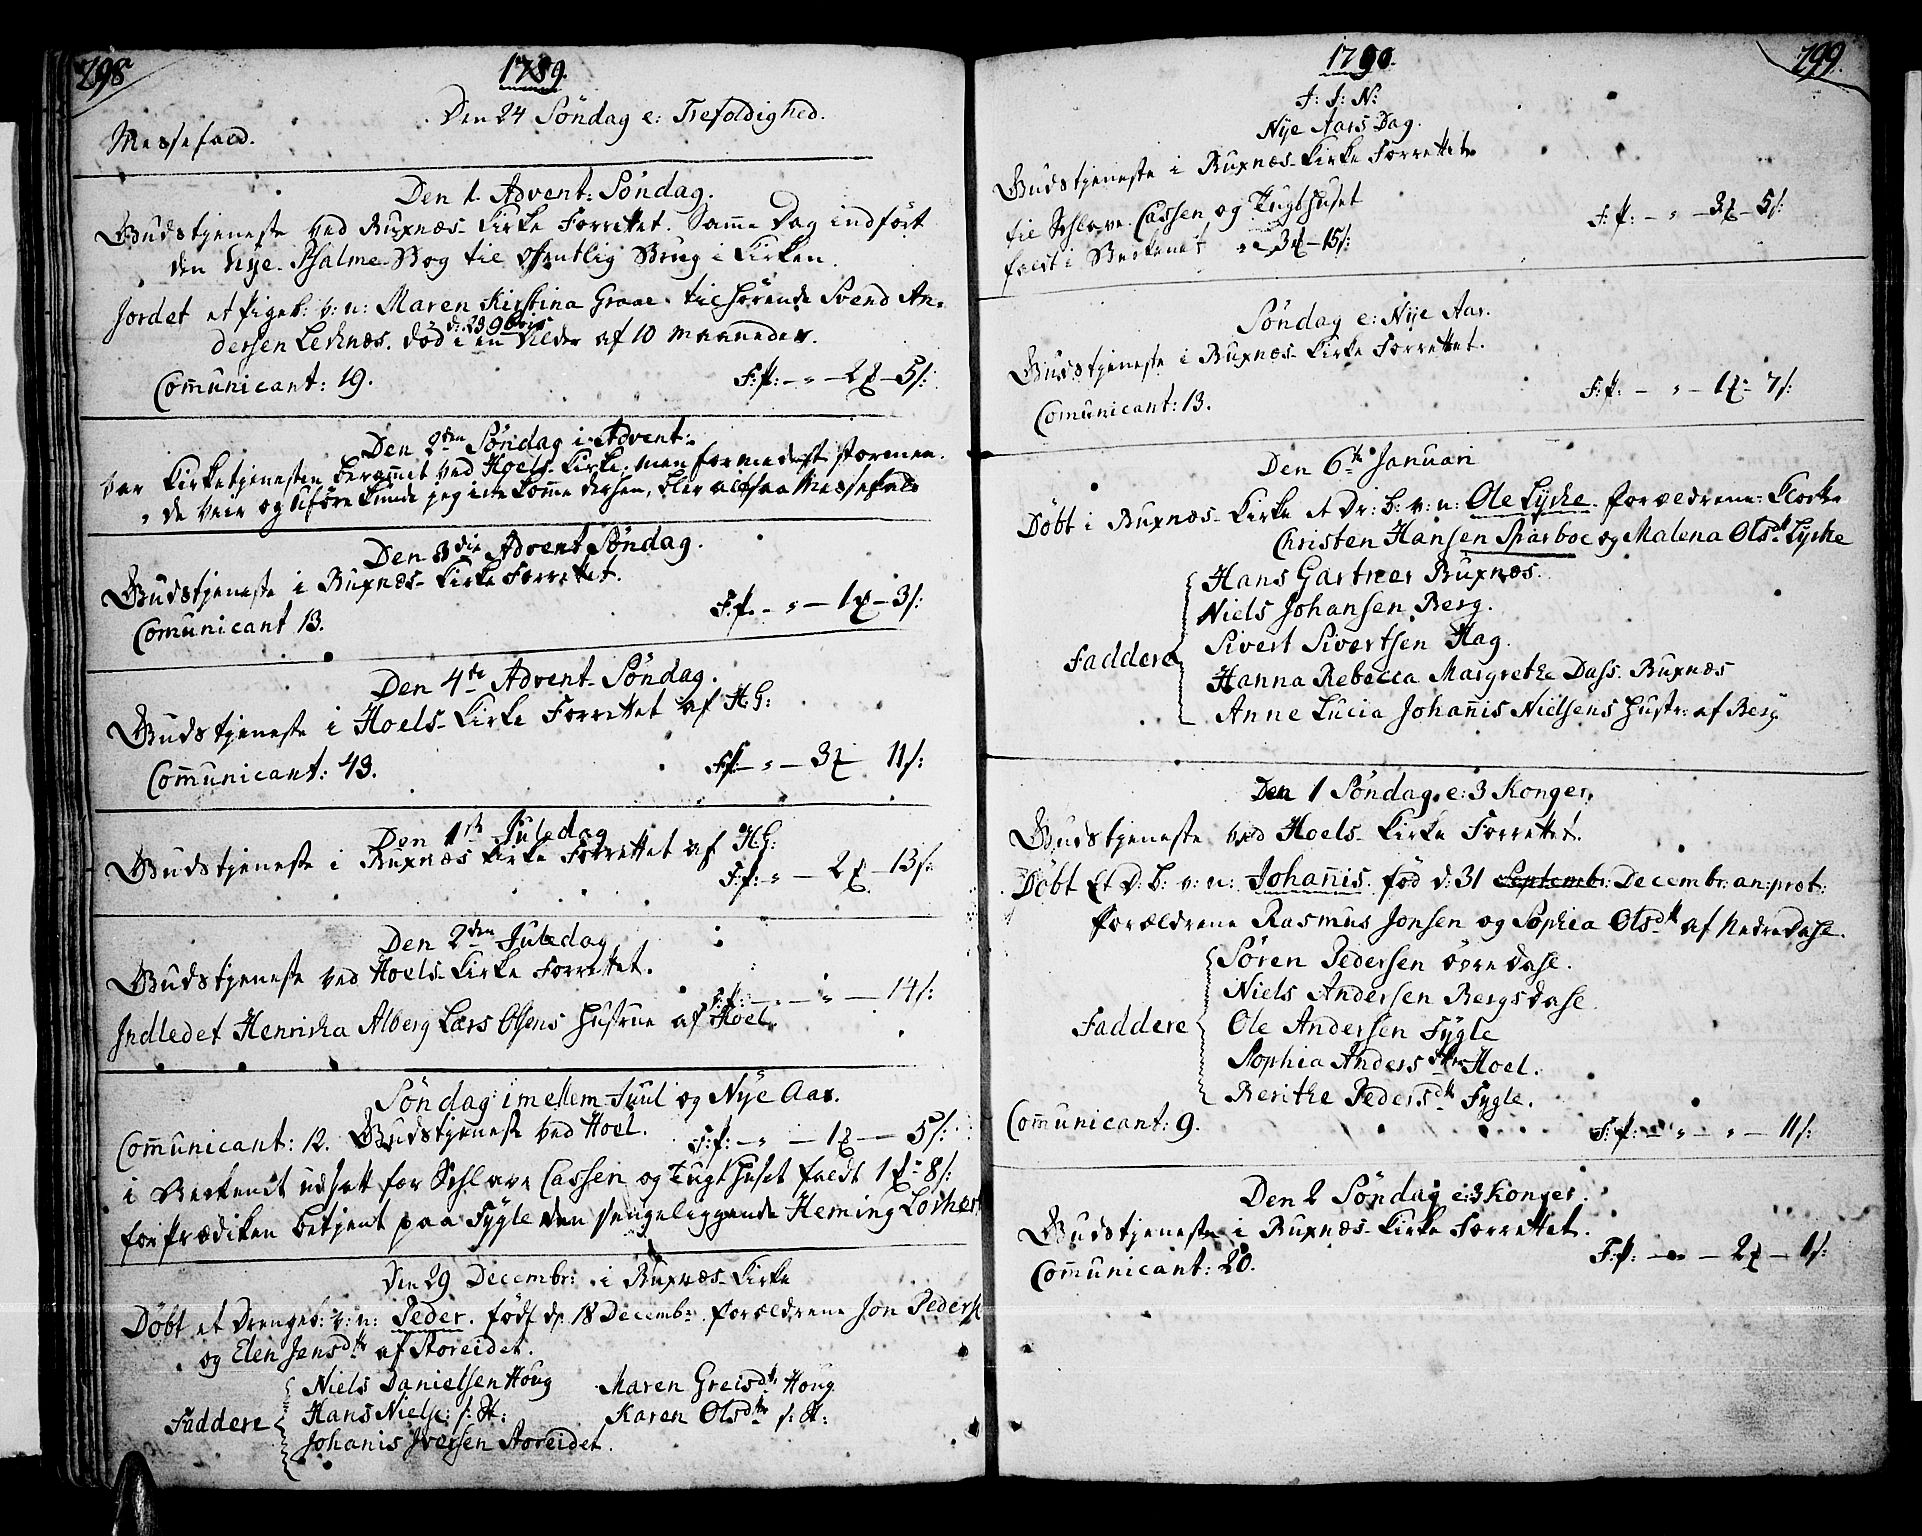 298
1789.
Den 24 Söndag e: Trefoldighed.
Messefald.
Den 1. Advent: Söndag.
Gudstjeneste ved Buxnæs Kirke Forrettet. Samme Dag indfört
den Nye Psalme-Bog til offentlig Brug i Kirken.
Jordet et Pigeb: v: n: Maren Kirstina Graae. tilhörende Svend An-
d: 29 9bris
dersen Leknæs. död i en Alder af 10 Maaneder.
Comunicant: 19.
F: p: - " - 2 - 5 s:
Den 2den Söndag i Advent:
var Kirketjenesten berammet ved Hoels Kirke, men formedelst stormen-
de Veir og Uföre kunde jeg ikke komme dersen, blev altsaa Messefald
Den 3die Advent Söndag.
Gudstjeneste i Buxnæs Kirke Forrettet.
Comunicant 13.
F: p. - " - 1 - 3 s:
Den 4de Advent Söndag.
Gudstjeneste i Hoels Kirke Forrettet af H. G:
Comunicant: 43.
F: p: - " - 3 11 s:
Den 1ste Juledag
Gudstjeneste i Buxnæs Kirke Forrettet af H. G:
F: p: - " - 2 - 13 s:
Den 2den Juledag
Gudstjeneste ved Hoels Kirke Forrettet.
F: p: - " - 14 s:
Indledet Henricha Alberg Lars Olsens Hustrue af Hoel.
Söndag imellem Juul og Nye Aar.
Comunicant: 12. Gudstjeneste ved Hoel. F: p: - " - 1 - 5 s:
i Beckenet udsatt for Schlave Cassen og Tugthuset faldt 1 - 8 s:
for Prædiken betjent paa Fygle den sengeliggende Heming Lorhes
Den 29 Decembr: i Buxnæs Kirke
Döbt et Drengeb: v: n: Peder. födt d. 18 Decemb: Forældrene Jon Peders
og Elen Jensdtr af Storeidet.
Faddere
Niels Danielsen Houg
Hans Niels: s: St:
Johanis Iversen Storeidet.
Maren Greisdtr Houg
Karen Olsdtr s: St:
299.
1790.
I: J: N:
Nye Aars Dag.
Gudstjeneste i Buxnæs Kirke Forrettet
til Schlave Cassen og Tugthuset
faldt i Beckenet 3 - 15 s:
F: p: - " - 3 - 5 s:
Söndag e: Nye Aar.
Gudstjeneste i Buxnæs Kirke Forrettet.
Comunicant: 13.
F: p: - " - 1 - 7 s:
Den 6te Januari
Döbt i Buxnæs Kirke et Dr: b: v: n: Ole Lyche. Forældrene: Klocker
Christen Hansen Sparboe og Malena Olsdtr Lyche
Faddere
Hans Gartner Buxnæs.
Niels Johansen Berg.
Sivert Sivertsen Hag.
Hanna Rebecca Margrethe Dass. Buxnæs
Anne Lucia Johanis Nielsens Hustr: af Berg
Den 1 Söndag. e: 3 Konger.
Gudstjeneste ved Hoels Kirke Forrettet.
Döbt Et D: b: v: n: Johanis. föd d: 31 Septembr: Decembr: an: præt:
Forældrene Rasmus Jonsen og Sophia Olsdtr af Nedredahl.
Faddere
Sören Pedersen övredahl.
Niels Andersen Bergsdahl.
Ole Andersen Fygle
Sophia Andersdtr Hoel.
Berithe Pedersdtr Fygle.
Comunicant: 9.
F: p: - " - " - 11 s:
Den 2 Söndag e: 3 Konger.
Gudstjeneste i Buxnæs Kirke Forrettet.
Comunicant: 20.
F: p: - " - 2 - 1 s: